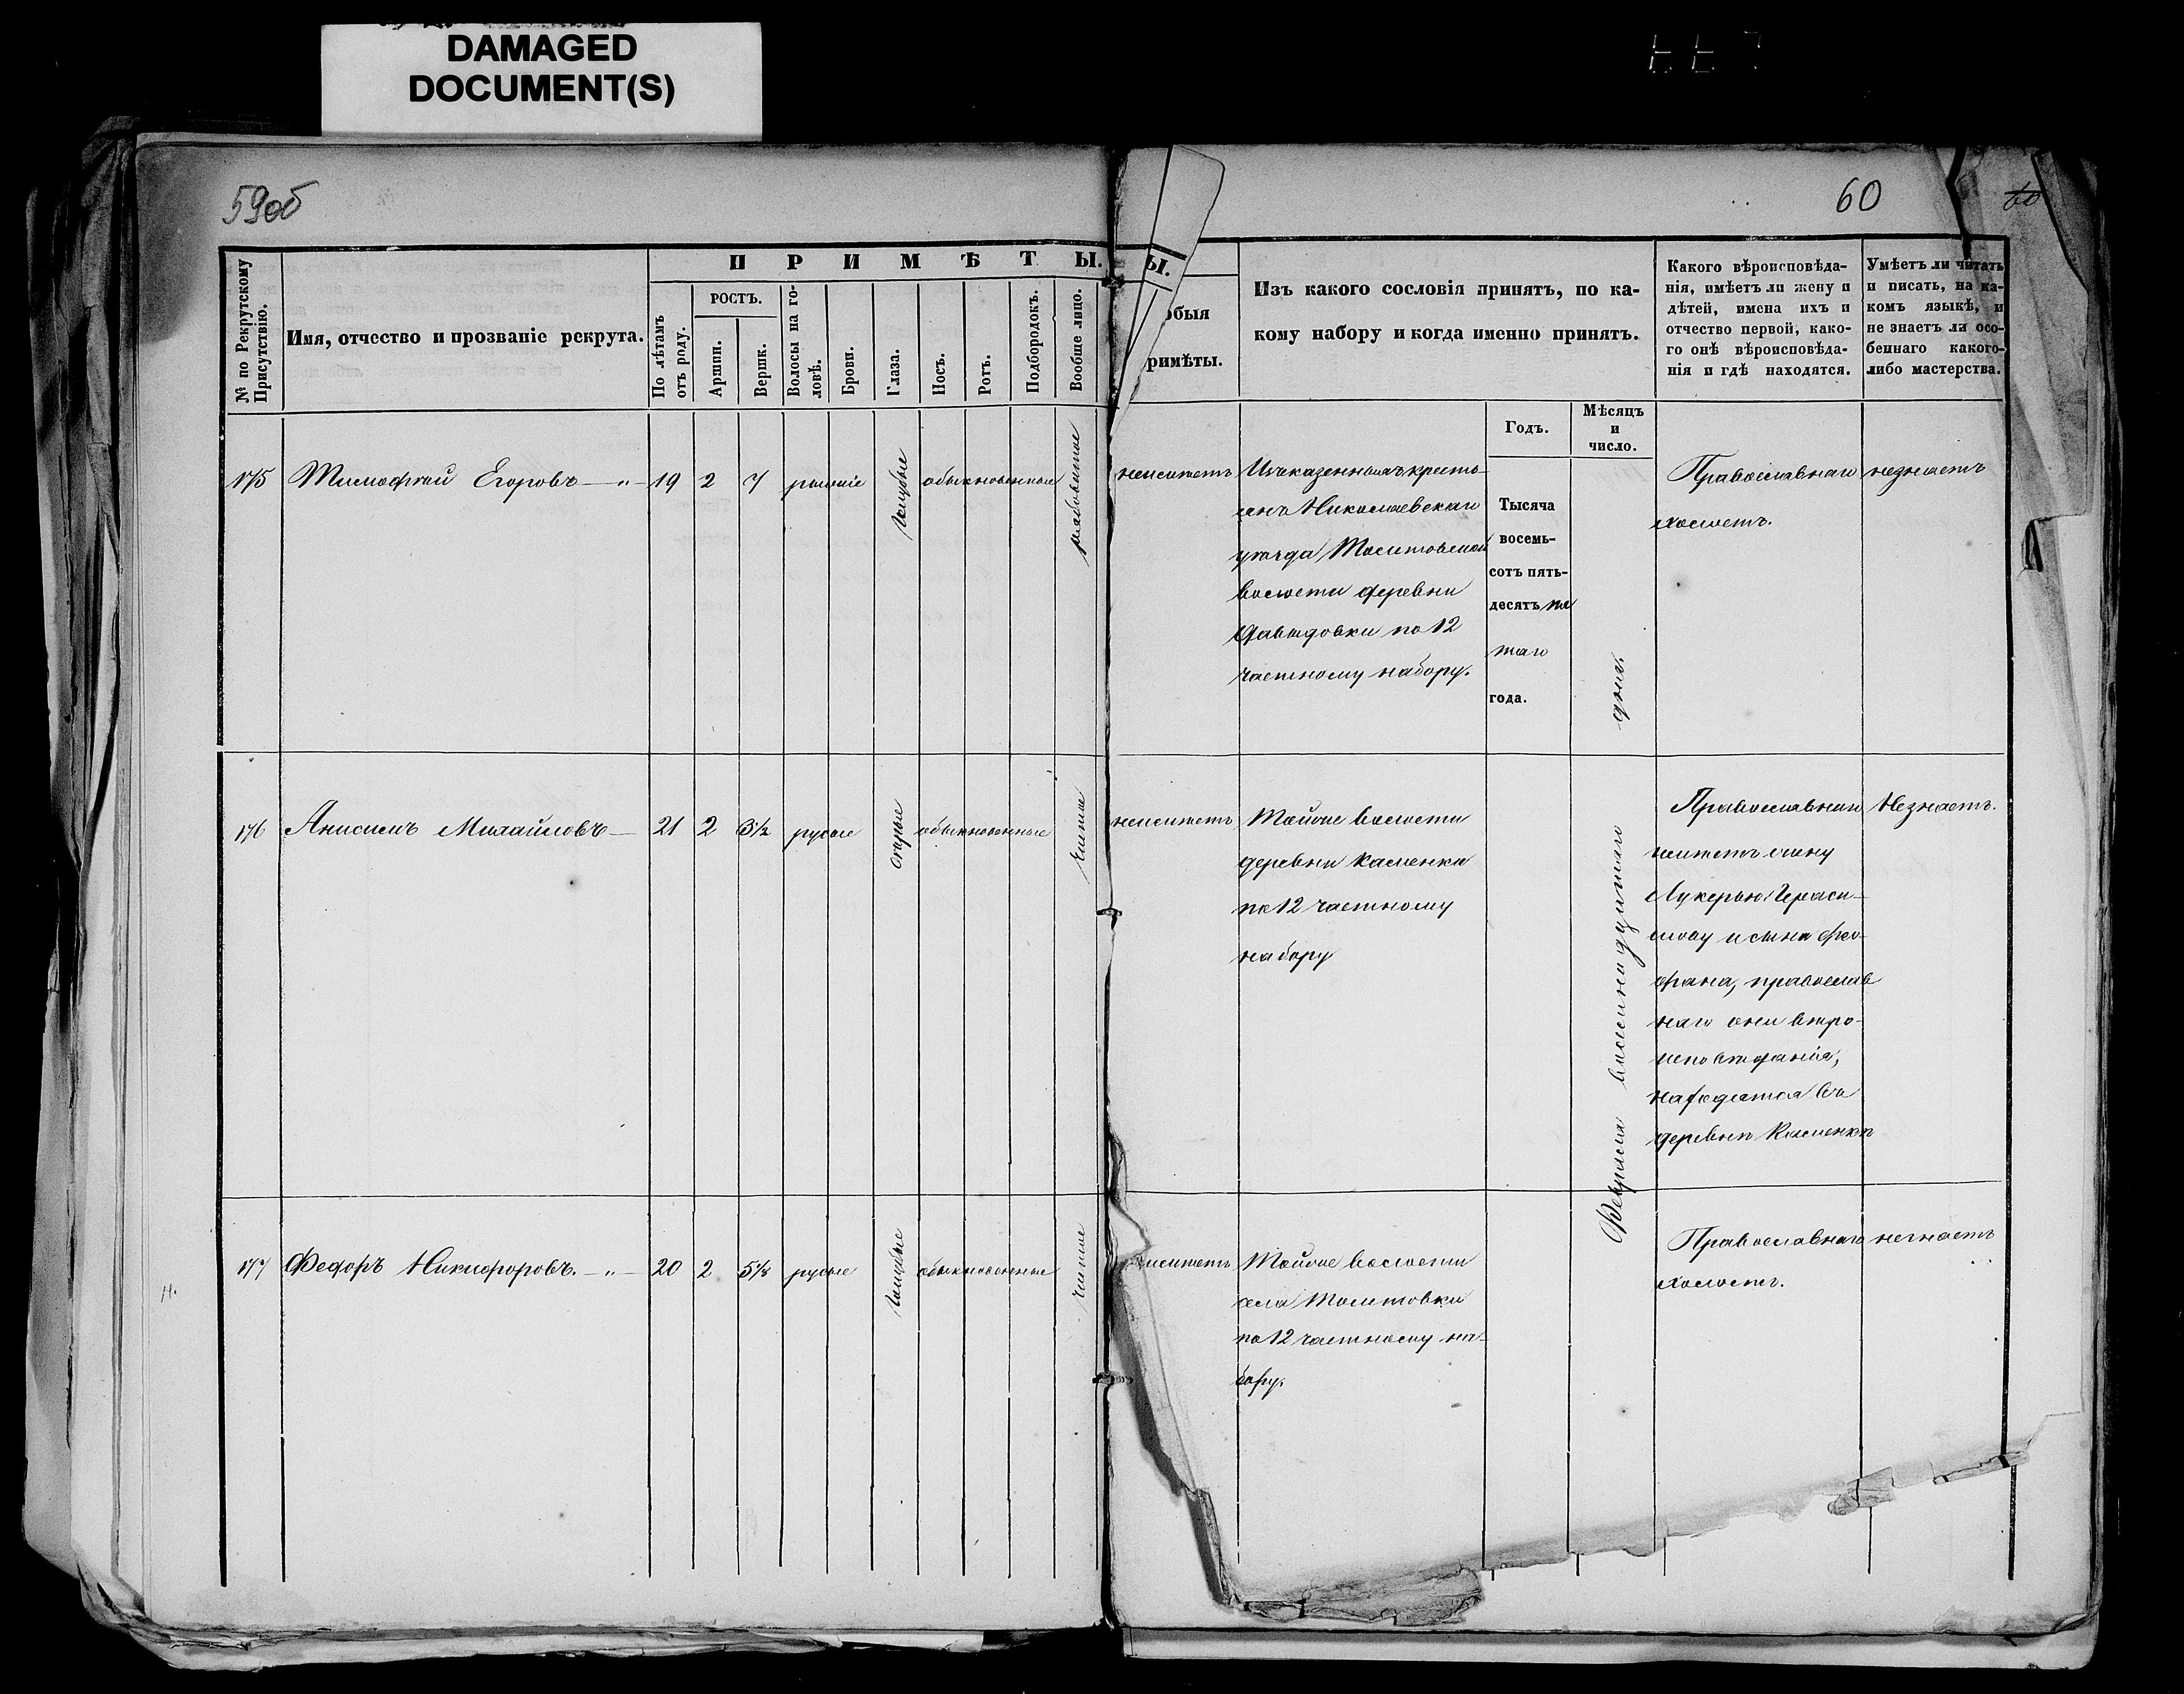 DAMAGED
DOCUMENT(S)
59об
60
60
№ по Рекрутскому
Присутствію.
Имя, отчество и прозваніе рекрута.
ПРИМѢТЫ.
По лѣтамъ
отъ роду.
РОСТЪ.
Аршин.
Вершк.
Волосы на го-
ловѣ.
Брови.
Глаза.
Носъ.
Ротъ.
Подбородокъ.
Вообще лицо.
Ы.
обыя
римѣты.
Изъ какого сословія принятъ, по ка-
кому набору и когда именно принятъ.
Какого вѣроисповѣда-
нія, имѣетъ ли жену и
дѣтей, имена ихъ и
отчество первой, како-
го онѣ вѣроисповѣда-
нія и гдѣ находятся.
Умѣетъ ли читать
и писать, на ка-
комъ языкѣ, и
не знаетъ ли осо-
беннаго какого-
либо мастерства.
Годъ.
Мѣсяцъ
и
число.
175
Тимофей Егоровъ
19
2
7
голубые
обыкновенные
рябоватое
неимѣетъ
Изъ казенныхъ кресть-
янъ Николаевскаго
уѣзда
волости деревни
Давыдовки по 12
частному набору.
Тысяча
восемь-
сотъ пять-
десятъ пя
таго
года.
Февраля восемнадцатаго дня.
Православнаго
холостъ.
незнаетъ
176
Анисимъ Михайловъ
21
2
3½
русые
сѣрые
обыкновенные
чистое
неимѣетъ
Тойже волости
деревни Каменки
по 12 частному
набору
Православнаго
имѣетъ жену
Лукерью Гераси-
мову и сына Фео-
фана, православ
наго они вѣро-
исповѣданія,
находятся въ
деревнѣ Каменкѣ
Незнаетъ.
177
Федоръ Никифоровъ.
20
2
5⅛
русые
голубые
обыкновенные
чистое
имѣетъ
Тойже волости
села
по 12 частному на-
бору.
Православнаго
холостъ.
незнаетъ